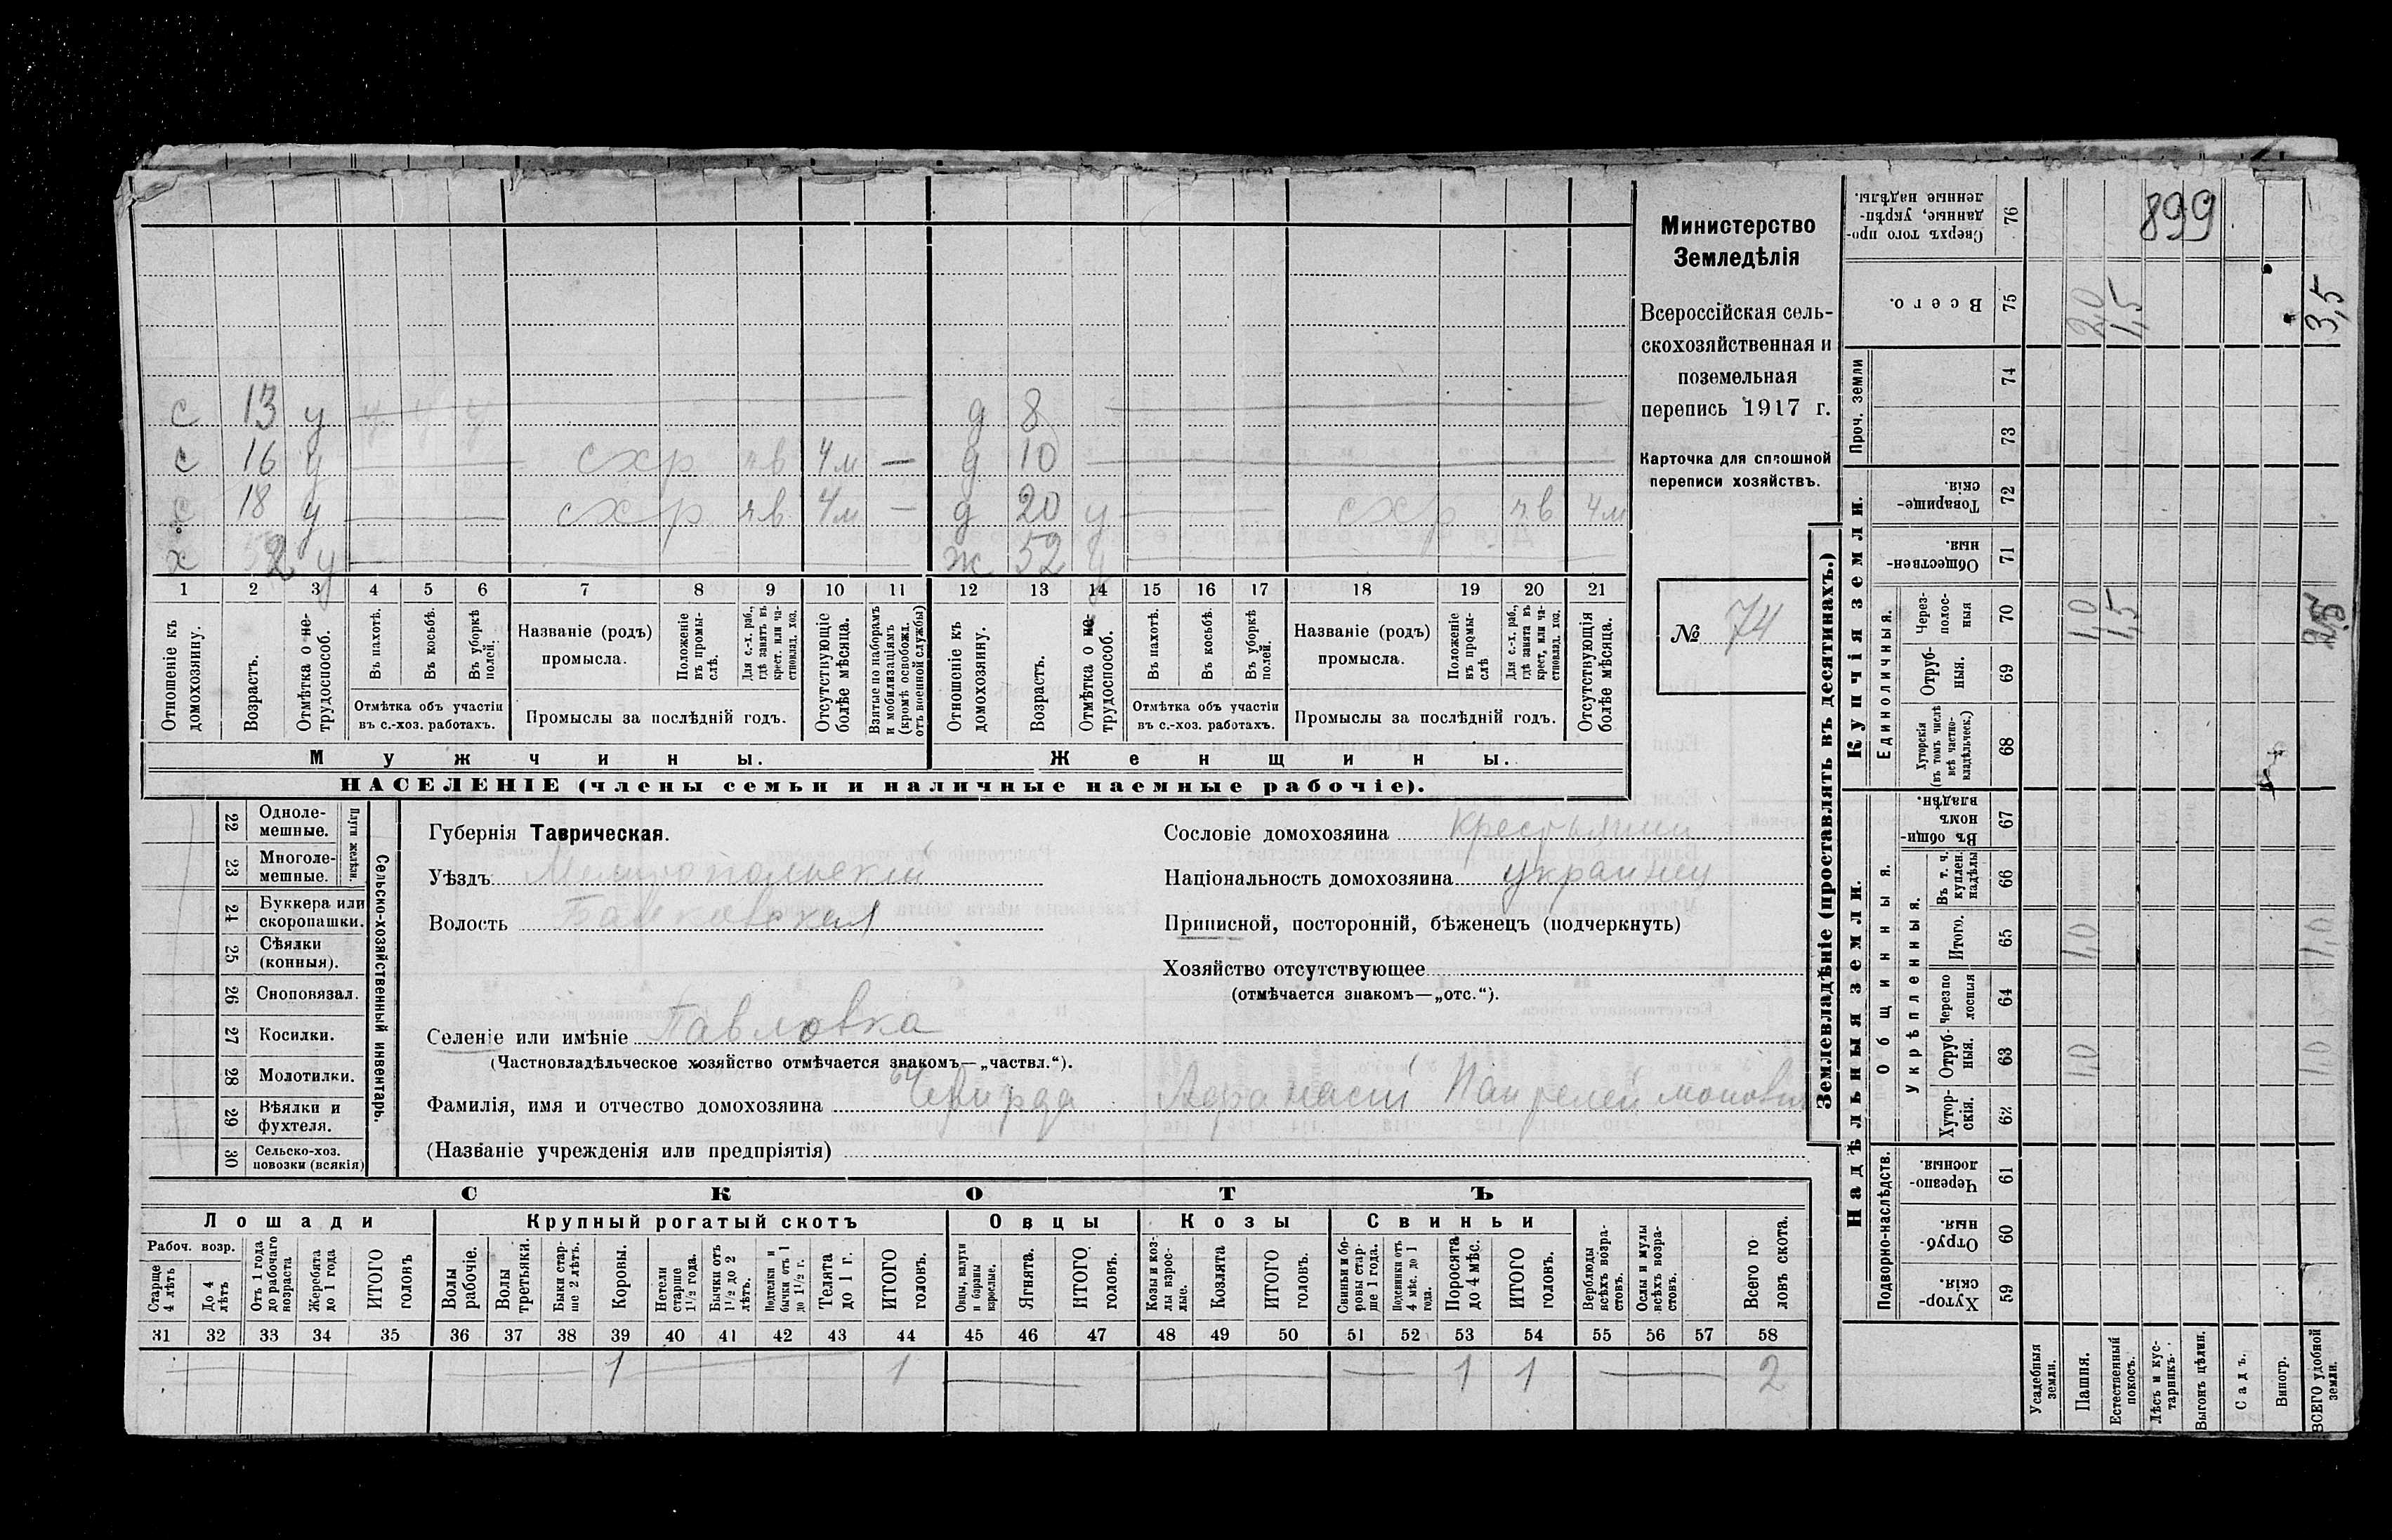 с 13 у у у у д 8
с 16 у схр чв 4м — д 10
с 18 у схр чв 4м — д 20 у схр чв 4м
х 52 у ж 52 у
1 2 3 4 5 6 7 8 9 10 11 12 13 14 15 16 17 18 19 20 21
Отношеніе къ домохозяину.
Возрастъ.
Отмѣтка о не-трудоспособ.
Въ пахотѣ.
Въ косьбѣ.
Въ уборкѣ полей.
Отмѣтка объ участіи въ с.-хоз. работахъ.
Названіе (родъ) промысла.
Положеніе въ промы-слѣ.
Для с.-х. раб., гдѣ занятъ въ крест. или ча-стновлад. хоз.
Промыслы за послѣдній годъ.
Отсутствующіе болѣе мѣсяца.
Взятые по наборамъ и мобилизаціямъ (кромѣ освобожд. отъ военной службы)
Отношеніе къ домохозяину.
Возрастъ.
Отмѣтка о не-трудоспособ.
Въ пахотѣ.
Въ косьбѣ.
Въ уборкѣ полей.
Отмѣтка объ участіи въ с.-хоз. работахъ.
Названіе (родъ) промысла.
Положеніе въ промы-слѣ
Для с.-х. раб., гдѣ занята въ крест. или ча-стновлад. хоз.
Промыслы за послѣдній годъ.
Отсутствующія болѣе мѣсяца.
Мужчины. Женщины.
НАСЕЛЕНІЕ (члены семьи и наличные наемные рабочіе).
Министерство
Земледѣлія
Всероссійская сель-
скохозяйственная и
поземельная
перепись 1917 г.
Карточка для сплошной
переписи хозяйствъ.
№ 74
22 Одноле-мешные.
23 Многоле-мешные.
Плуги желѣзн.
24 Буккера или скоропашки.
25 Сѣялки (конныя).
26 Сноповязал.
27 Косилки.
28 Молотилки.
29 Вѣялки и фухтеля.
30 Сельско-хоз. повозки (всякія)
Сельско-хозяйственный инвентарь.
Губернія Таврическая.
Уѣздъ Мелитопольскій
Волость
Сословіе домохозяина крестьянин
Національность домохозяина украинец
Приписной, посторонній, бѣженецъ (подчеркнуть)
Хозяйство отсутствующее
(отмѣчается знакомъ—„отс.“).
Селеніе или имѣніе Павловка
(Частновладѣльческое хозяйство отмѣчается знакомъ—„частвл.“).
Фамилія, имя и отчество домохозяина Афанасій Пантелеймонович
(Названіе учрежденія или предпріятія)
СКОТЪ
Лошади Крупный рогатый скотъ Овцы Козы Свиньи
Рабоч. возр.
Старше 4 лѣтъ
До 4 лѣтъ
Отъ 1 года до рабочаго возраста
Жеребята до 1 года
ИТОГО головъ
Волы рабочіе.
Волы третьяки.
Быки стар-ше 2 лѣтъ.
Коровы.
Нетели старше 1 1/2 года.
Бычки отъ 1 1/2 до 2 лѣтъ.
Подтелки и бычки отъ 1 до 1 1/2 г.
Телята до 1 г.
ИТОГО головъ.
Овцы, валухи и бараны взрослые.
Ягнята.
ИТОГО головъ.
Козы и коз-лы взрос-лые.
Козлята
ИТОГО головъ.
Свиньи и бо-ровы стар-ше 1 года.
Подсвинки отъ 4 мѣс. до 1 года.
Поросята до 4 мѣс.
ИТОГО головъ.
Верблюды всѣхъ возра-стовъ.
Ослы и мулы всѣхъ возра-стовъ.
Всего го-ловъ скота.
31 32 33 34 35 36 37 38 39 40 41 42 43 44 45 46 47 48 49 50 51 52 53 54 55 56 57 58
1 1 1 1 2
Землевладѣніе (проставлять въ десятинахъ.)
Надѣльныя земли. Купчія земли. Проч. земли
Подворно-наслѣдств.
Общинныя.
Укрѣпленныя.
Единоличныя.
Сверхъ того про-данные, укрѣп-ленные надѣлы. 76 899
Всего. 75 2,0 1,5 3,5
74
73
Товарище-скія. 72
Обществен-ныя. 71
Через-полос-ныя 70 1,0 1,5 2,5
Отруб-ныя. 69
Хуторскія (въ томъ числѣ всѣ частно-владѣльческ.) 68
Въ общин-номъ владѣн. 67
Въ т. ч. куплен. надѣлы 66
Итого. 65 1,0 1,0
Черезпо-лосныя 64
Отруб-ныя. 63 1,0 1,0
Хутор-скія. 62
Черезпо-лосныя. 61
Отруб-ныя. 60
Хутор-скія. 59
Усадебныя земли.
Пашня.
Естественный покосъ.
Лѣсъ и кус-тарникъ.
Выгонъ цѣлин.
Садъ.
Виногр.
ВСЕГО удобной земли.